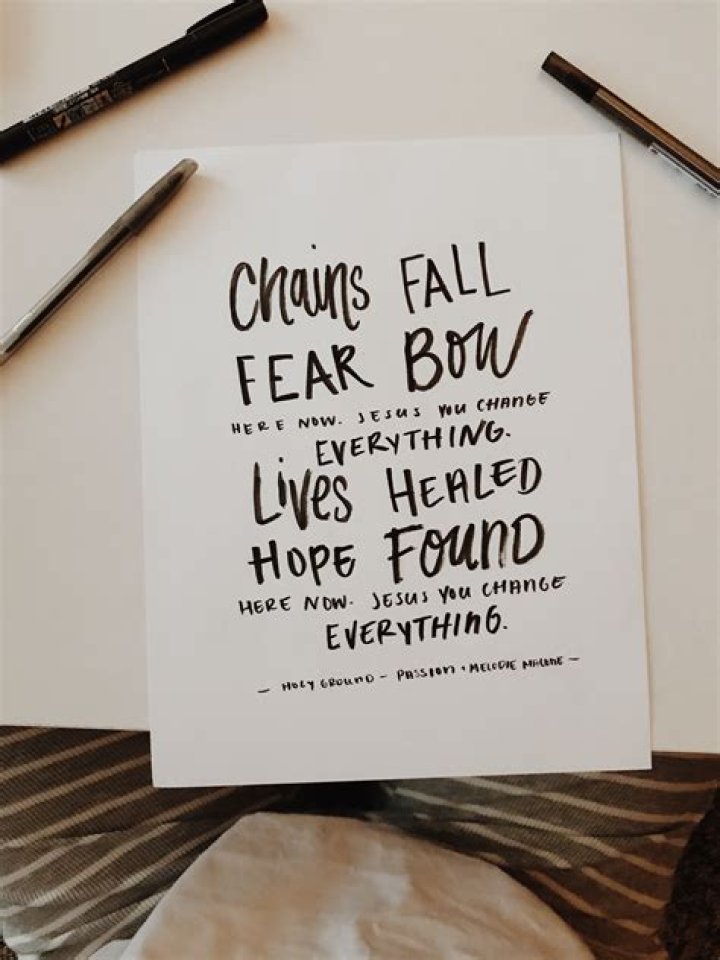 Chains FALL
FEAR BOW
HERE NOW. JESUS YOU CHANGE
EVERYTHING.
Lives HEALED
HOPE FOUND
HERE NOW. JESUS YOU CHANGE
EVERYTHING.
— HOLY GROUND – PASSION + MELODIE MALONE —